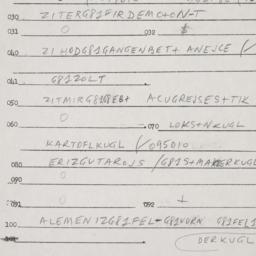 030 ZITERG81FIRDEMO+ON-T
031 0 032 $
040 ZIHODG81GANGENBET+ ANEJCE (✓
041 G81ZOLT
050 ZITMIRG81GEB+ ACUGREJSES+TIK
060 0 070 LOKS+NKUGL
KARTOFLKUGL √095010
080 ERIZGUTAROJS /G81S+MAKERKUGL
090 0
091 0 092 ⊥
100 ALEMENIZG81FEL- G81VORN G81FEL1
DERKUGL